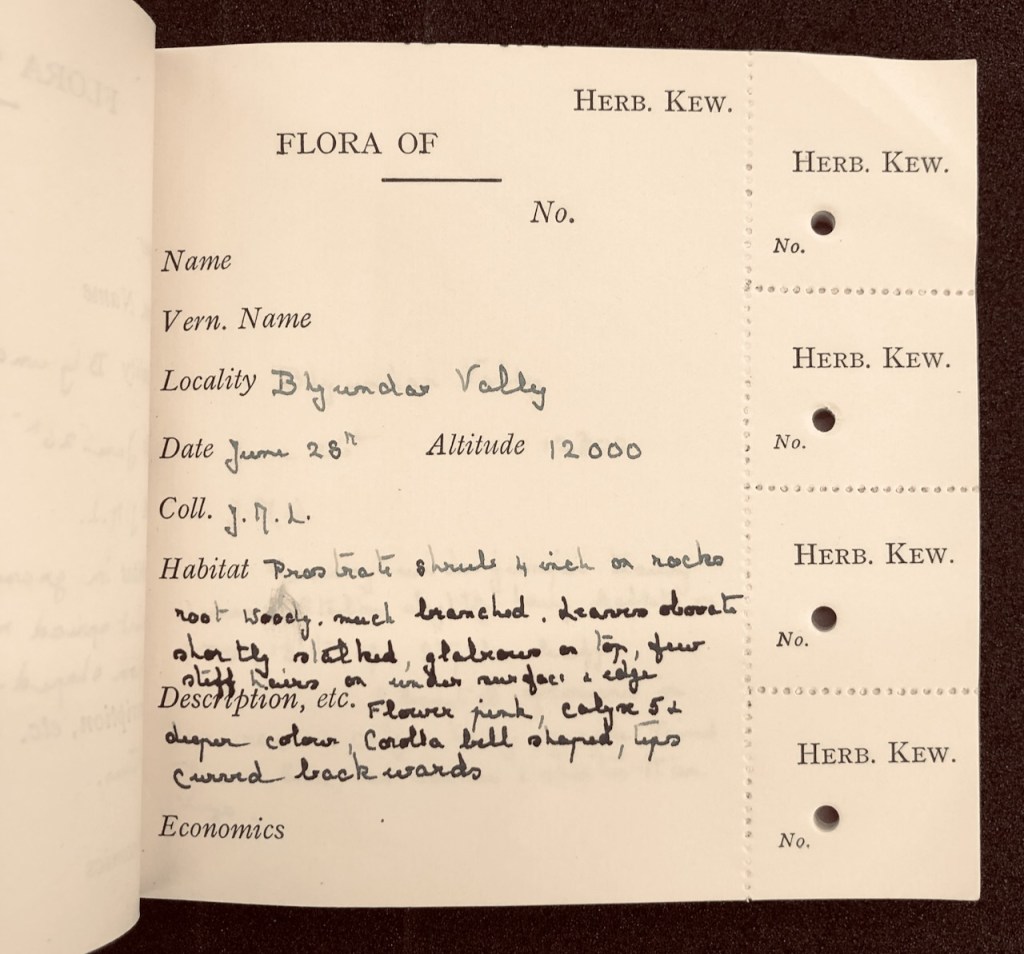 HERB. KEW.
FLORA OF
No.
Name
Vern. Name
Locality Bhyundar Valley
Date June 28th Altitude 12000
Coll. J. M. L.
Habitat Prostrate shrub 4 inch on rocks
root woody, much branched. Leaves obovate
shortly stalked, glabrous on top, few
stiff hairs on under surface & edge
Description, etc. Flower pink, calyx 5
deeper colour, Corolla bell shaped, tips
curved backwards
Economics
HERB. KEW.
No.
HERB. KEW.
No.
HERB. KEW.
No.
HERB. KEW.
No.